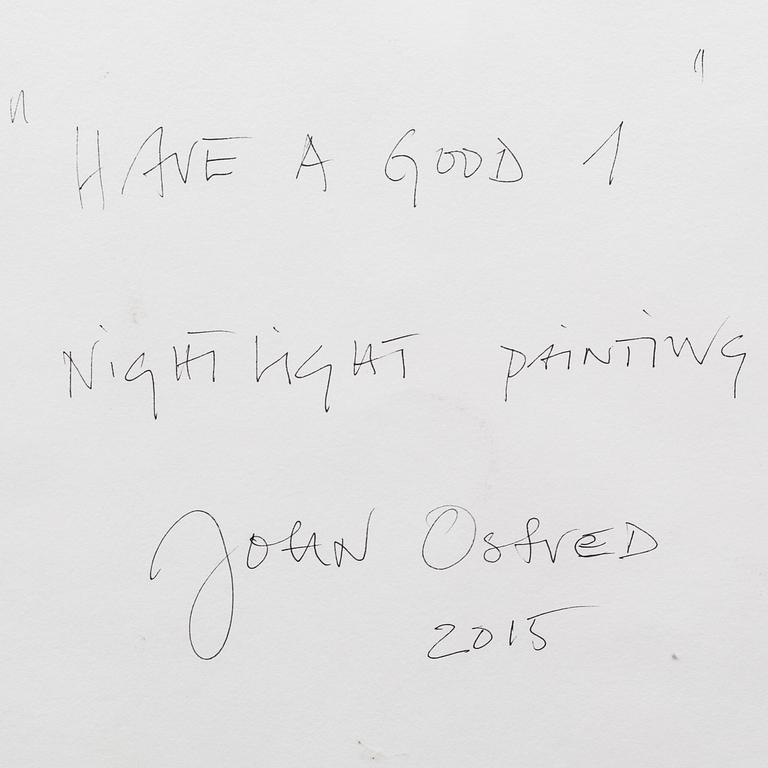 "HAVE A GOOD 1"
NiGHTLiGHT PAiNTiNG
JOHN OsfreD
2015